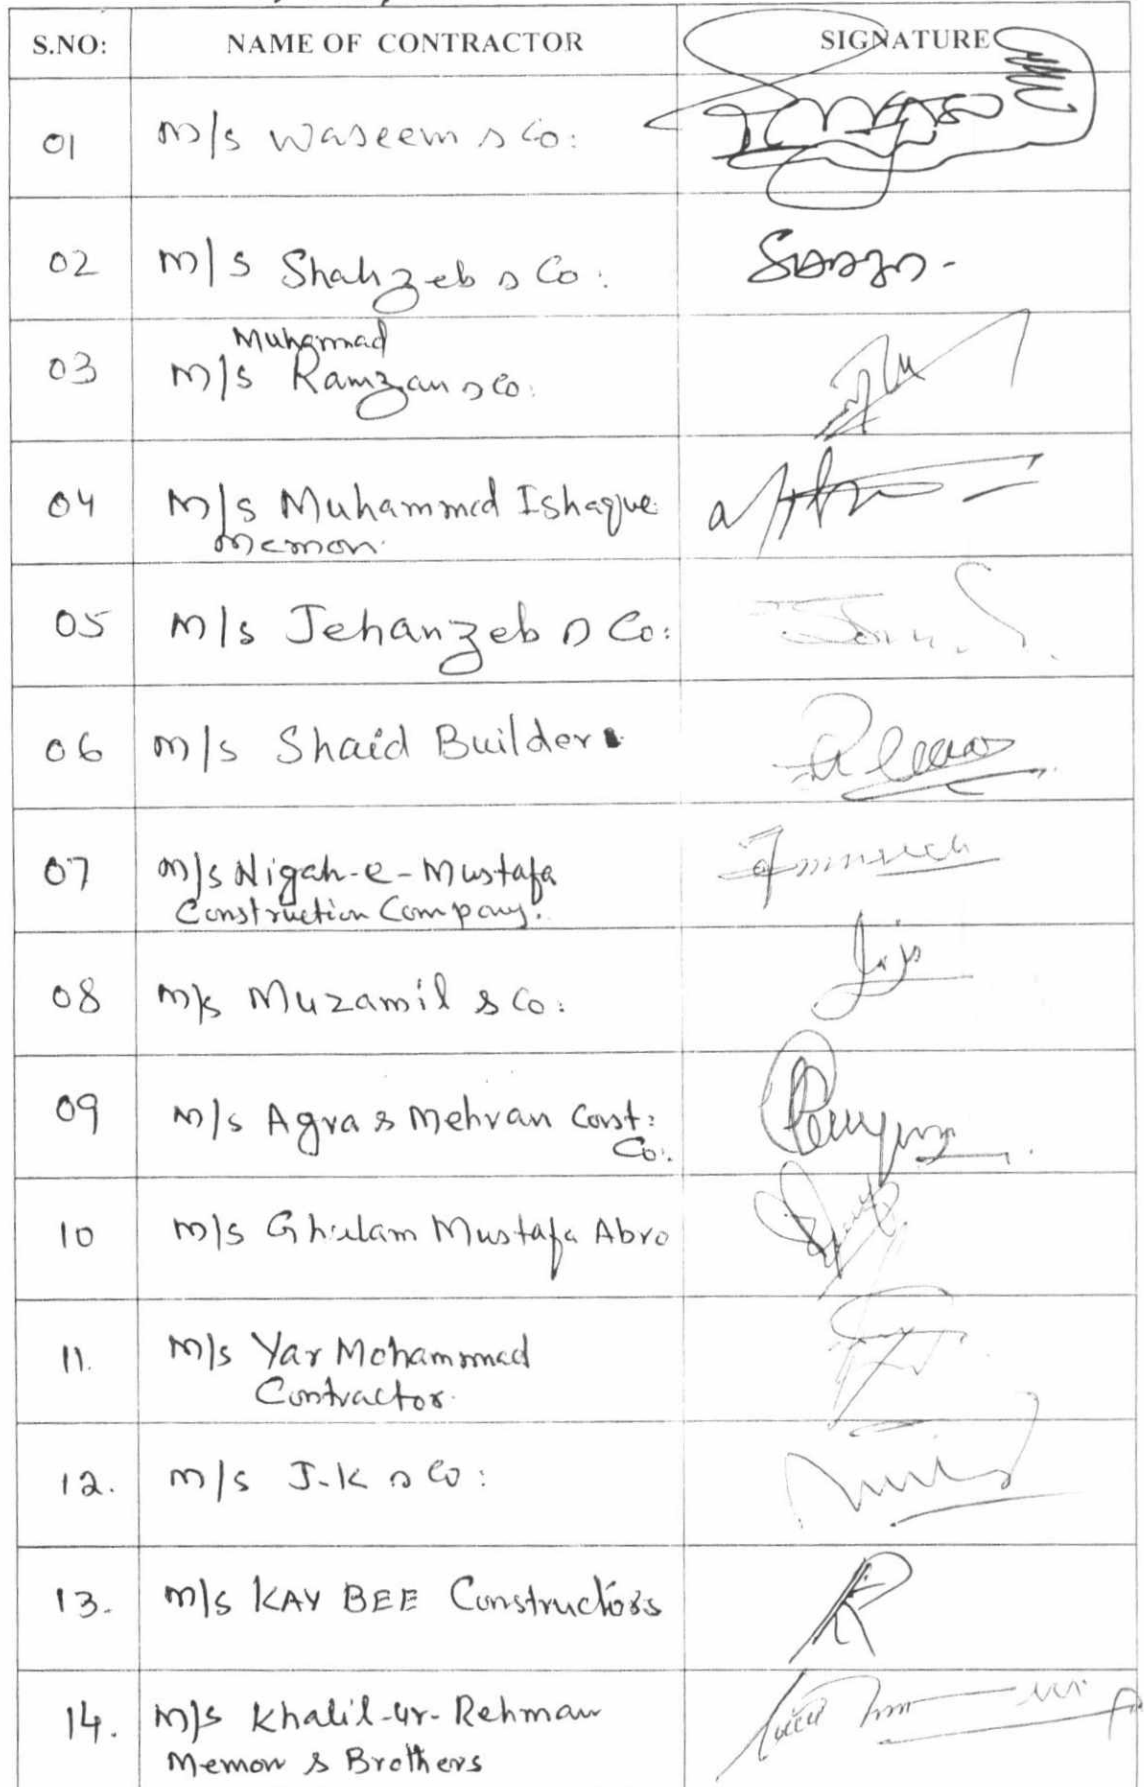 S.NO: NAME OF CONTRACTOR SIGNATURE
01 M/s Waseem & Co:
02 M/s Shahzeb & Co:
Muhammad
03 M/s Ramzan & Co:
04 M/s Muhammad Ishaque
Memon.
05 M/s Jehanzeb & Co:
06 M/s Shaid Builder
07 M/s Nigah-e-Mustafa
Construction Company.
08 M/s Muzamil & Co:
09 M/s Agra & Mehran Const:
Co:
10 M/s Ghulam Mustafa Abro
11. M/s Yar Mohammad
Contractor.
12. M/s J-K & Co:
13. M/s KAY BEE Constructors
14. M/s Khalil-ur-Rehman
Memon & Brothers